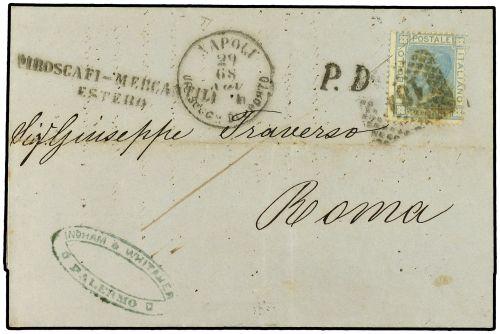 PIROSCAFI-MERCA
ESTERO
NAPOLI
29
68
PORTO
P. D
POSTALE
ITALIANO
Sigr Giuseppe Traverso
Roma
INGHAM & WHITAKER
PALERMO